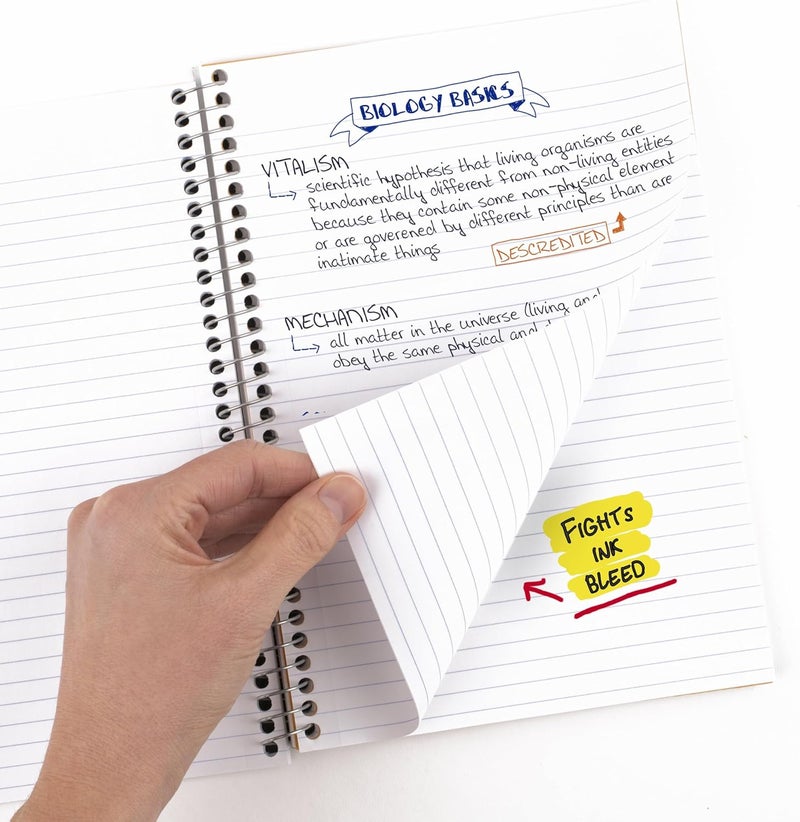 BIOLOGY BASICS
VITALISM
scientific hypothesis that living organisms are
fundamentally different from non-living entities
because they contain some non-physical element
or are goverened by different principles than are
inatimate things
DESCREDITED
MECHANISM
all matter in the universe (living, and
obey the same physical and
FIGHTS
INK
BLEED